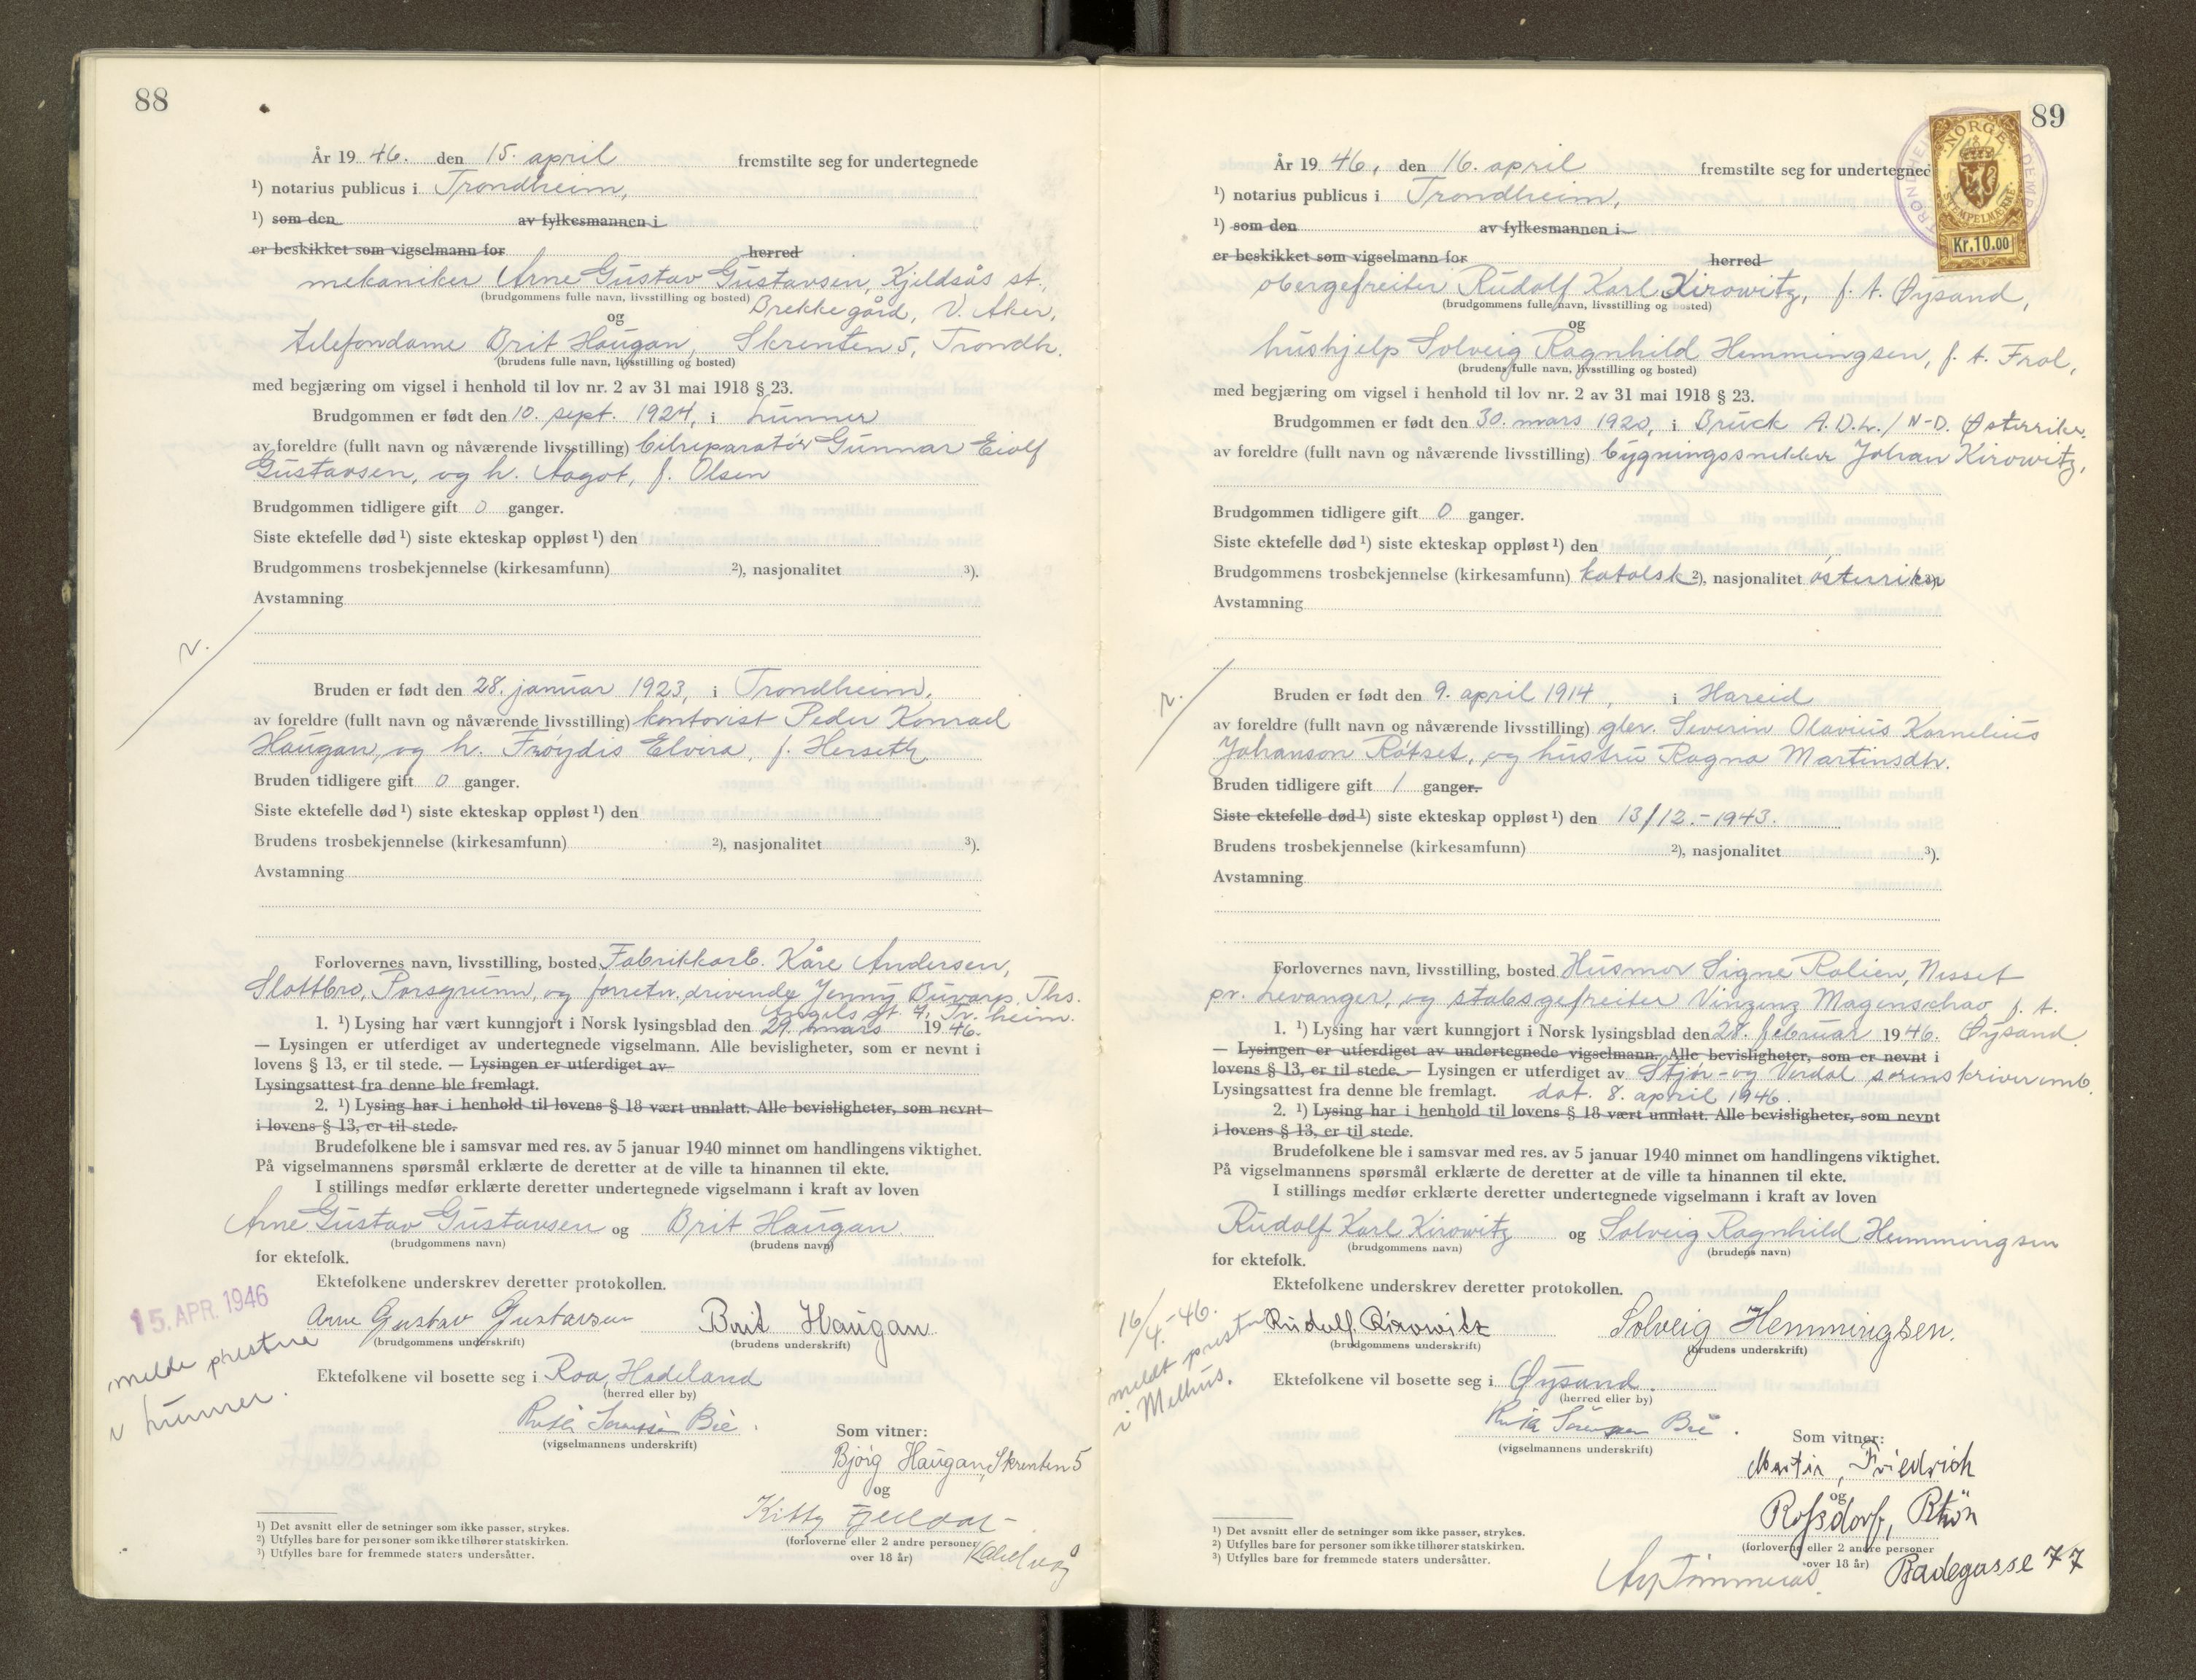 88
År 19 46. den 15. april fremstilte seg for undertegnede
¹) notarius publicus i Trondheim,
¹) som den av fylkesmannen i
er beskikket som vigselmann for herred
mekaniker Arne Gustav Gustavsen, Kjeldsås st.,
(brudgommens fulle navn, livsstilling og bosted) Brekke gård, V. Aker,
og
telefondame Brit Haugan, Skrenten 5, Trondh.
(brudens fulle navn, livsstilling og bosted)
med begjæring om vigsel i henhold til lov nr. 2 av 31 mai 1918 § 23.
Brudgommen er født den 10. sept. 1924, i Lunner
av foreldre (fullt navn og nåværende livsstilling) bilreparatør Gunnar Eiolf
Gustavsen, og h. Aagot, f. Olsen
Brudgommen tidligere gift 0 ganger.
Siste ektefelle død ¹) siste ekteskap oppløst ¹) den
Brudgommens trosbekjennelse (kirkesamfunn) ²), nasjonalitet ³).
Avstamning
Bruden er født den 28. januar 1923, i Trondheim,
av foreldre (fullt navn og nåværende livsstilling) kontorist Peder Konrad
Haugan, og h. Frøydis Elvira, f. Herseth
Bruden tidligere gift 0 ganger.
Siste ektefelle død ¹) siste ekteskap oppløst ¹) den
Brudens trosbekjennelse (kirkesamfunn) ²), nasjonalitet ³).
Avstamning
Forlovernes navn, livsstilling, bosted Fabrikkarb. Kåre Andersen,
Slottbro, Porsgrunn, og forretn.drivende Jenny Buvarp, Ths.
Angels gt. 9, Tr.heim.
1. ¹) Lysing har vært kunngjort i Norsk lysingsblad den 29. mars 19 46.
— Lysingen er utferdiget av undertegnede vigselmann. Alle bevisligheter, som er nevnt i
lovens § 13, er til stede. — Lysingen er utferdiget av
Lysingsattest fra denne ble fremlagt.
2. ¹) Lysing har i henhold til lovens § 18 vært unnlatt. Alle bevisligheter, som nevnt
i lovens § 13, er til stede.
Brudefolkene ble i samsvar med res. av 5 januar 1940 minnet om handlingens viktighet.
På vigselmannens spørsmål erklærte de deretter at de ville ta hinannen til ekte.
I stillings medfør erklærte deretter undertegnede vigselmann i kraft av loven
Arne Gustav Gustavsen og Brit Haugan
(brudgommens navn) (brudens navn)
for ektefolk.
Ektefolkene underskrev deretter protokollen.
15. APR. 1946
Arne Gustav Gustavsen Brit Haugan
(brudgommens underskrift) (brudens underskrift)
melde prestne
i Lunner.
Ektefolkene vil bosette seg i Roa, Hadeland
(herred eller by)
(vigselmannens underskrift)
Som vitner:
Bjørg Haugan, Skrenten 5
og
Kitty
(forloverne eller 2 andre personer
over 18 år)
¹) Det avsnitt eller de setninger som ikke passer, strykes.
²) Utfylles bare for personer som ikke tilhører statskirken.
³) Utfylles bare for fremmede staters undersåtter.
89
NORGE
STEMPELMERKE
Kr.10.00
År 19 46, den 16. april fremstilte seg for undertegned
¹) notarius publicus i Trondheim,
¹) som den av fylkesmannen i
er beskikket som vigselmann for herred
obergefreiter Rudolf Karl Kirowitz, f. t. Øysand,
(brudgommens fulle navn, livsstilling og bosted)
og
hushjelp Solveig Ragnhild Hemmingsen, f. t. Frol,
(brudens fulle navn, livsstilling og bosted)
med begjæring om vigsel i henhold til lov nr. 2 av 31 mai 1918 § 23.
Brudgommen er født den 30. mars 1920, i Bruck A.D.L. / N-D. Østerrike,
av foreldre (fullt navn og nåværende livsstilling) bygningssnekker Johan Kirowitz,
Brudgommen tidligere gift 0 ganger.
Siste ektefelle død ¹) siste ekteskap oppløst ¹) den
Brudgommens trosbekjennelse (kirkesamfunn) katolsk ²), nasjonalitet østerriker ³)
Avstamning
Bruden er født den 9. april 1914, i Hareid
av foreldre (fullt navn og nåværende livsstilling) glev. Severin Olavius Kornelius
Johanson Røtset, og hustru Ragna Martinsdtr.
Bruden tidligere gift 1 ganger.
Siste ektefelle død ¹) siste ekteskap oppløst ¹) den 13/12.-1943.
Brudens trosbekjennelse (kirkesamfunn) ²), nasjonalitet ³).
Avstamning
Forlovernes navn, livsstilling, bosted Husmor Signe Rolien, Nesset
pr. Levanger, og stabsgefreiter Vinzenz Magenschav f. t.
1. ¹) Lysing har vært kunngjort i Norsk lysingsblad den 28. februar 19 46. Øysand.
— Lysingen er utferdiget av undertegnede vigselmann. Alle bevisligheter, som er nevnt i
lovens § 13, er til stede. — Lysingen er utferdiget av Stjør- og Verdal sorenskriveremb.
Lysingsattest fra denne ble fremlagt. dat. 8. april 1946.
2. ¹) Lysing har i henhold til lovens § 18 vært unnlatt. Alle bevisligheter, som nevnt
i lovens § 13, er til stede.
Brudefolkene ble i samsvar med res. av 5 januar 1940 minnet om handlingens viktighet.
På vigselmannens spørsmål erklærte de deretter at de ville ta hinannen til ekte.
I stillings medfør erklærte deretter undertegnede vigselmann i kraft av loven
Rudolf Karl Kirowitz og Solveig Ragnhild Hemmingsen
(brudgommens navn) (brudens navn)
for ektefolk.
Ektefolkene underskrev deretter protokollen.
16/4.-46.
meldt presten
i Melhus.
Rudolf Kirowitz Solveig Hemmingsen.
(brudgommens underskrift) (brudens underskrift)
Ektefolkene vil bosette seg i Øysand.
(herred eller by)
(vigselmannens underskrift)
Som vitner:
Martin, Friedrich
og
Roßdorf, Rhön
(forloverne eller 2 andre personer
over 18 år) Badegasse 77
¹) Det avsnitt eller de setninger som ikke passer, strykes.
²) Utfylles bare for personer som ikke tilhører statskirken.
³) Utfylles bare for fremmede staters undersåtter.